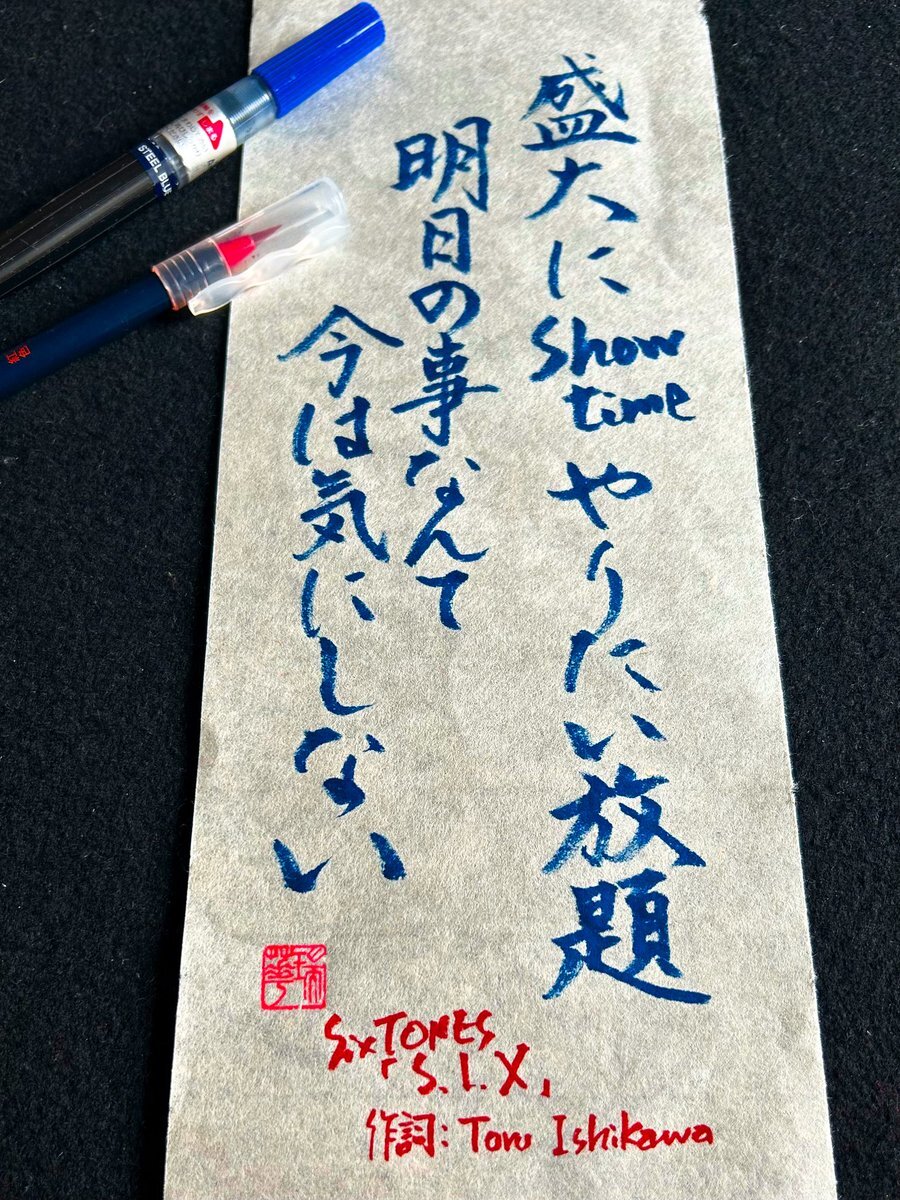 盛大に Show time やりたい放題
明日の事なんて
今は気にしない
SixTONES
「S.I.X」
作詞: Toru Ishikawa
STEEL BLUE